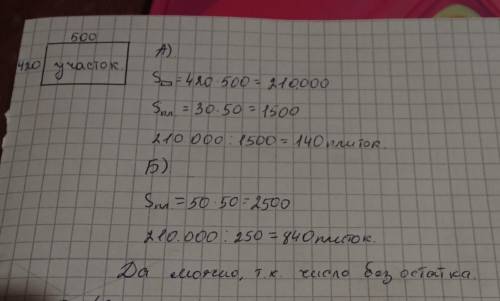 500
420 участок.
А)
S▭ = 420·500 = 210.000
Sпл = 30·50 = 1500
210.000 : 1500 = 140 плиток.
Б)
Sпл = 50·50 = 2500
210.000 : 250 = 840 плиток.
Да можно, т.к. число без остатка.